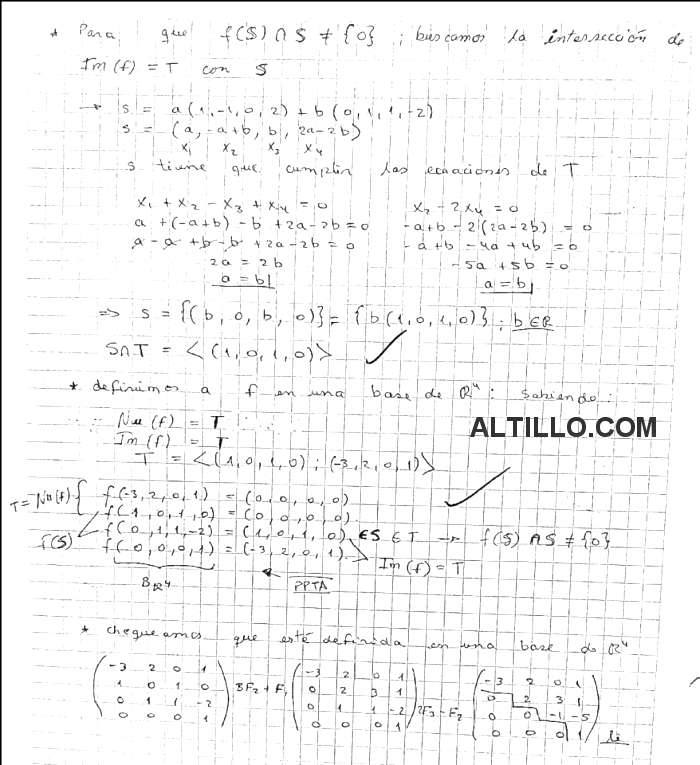 * Para que f(S) ∩ S ≠ {0} ; buscamos la intersección de
Im(f) = T con S
→ s = a(1,-1,0,2) + b(0,1,1,-2)
s = (a, -a+b, b, 2a-2b)
x₁ x₂ x₃ x₄
s tiene que cumplir las ecuaciones de T
x₁ + x₂ - x₃ + x₄ = 0 x₂ - 2x₄ = 0
a + (-a+b) - b + 2a-2b = 0 -a+b - 2(2a-2b) = 0
a - a + b - b + 2a - 2b = 0 -a+b - 4a + 4b = 0
2a = 2b -5a + 5b = 0
a = b a = b
=> S = {(b, 0, b, 0)} = {b(1,0,1,0)} ; b ∈ R
S∩T = < (1,0,1,0) >
* definimos a f en una base de R⁴ : Sabiendo :
Nu(f) = T
ALTILLO.COM
Im(f) = T
T = <(1,0,1,0) ; (-3,2,0,1)>
T = Nu(f) { f(-3,2,0,1) = (0,0,0,0)
f(1,0,1,0) = (0,0,0,0)
f(S) f(0,1,1,-2) = (1,0,1,0) ∈S ∈T → f(S) ∩ S ≠ {0}
f(0,0,0,1) = (-3,2,0,1) Im(f) = T
B R⁴ ← PPTA
* chequeamos que esté definida en una base de R⁴
-3 2 0 1 -3 2 0 1 -3 2 0 1
1 0 1 0 3F₂ + F₁ 0 2 3 1 0 2 3 1
0 1 1 -2 0 1 1 -2 2F₃ - F₂ 0 0 -1 -5
0 0 0 1 0 0 0 1 0 0 0 1 li